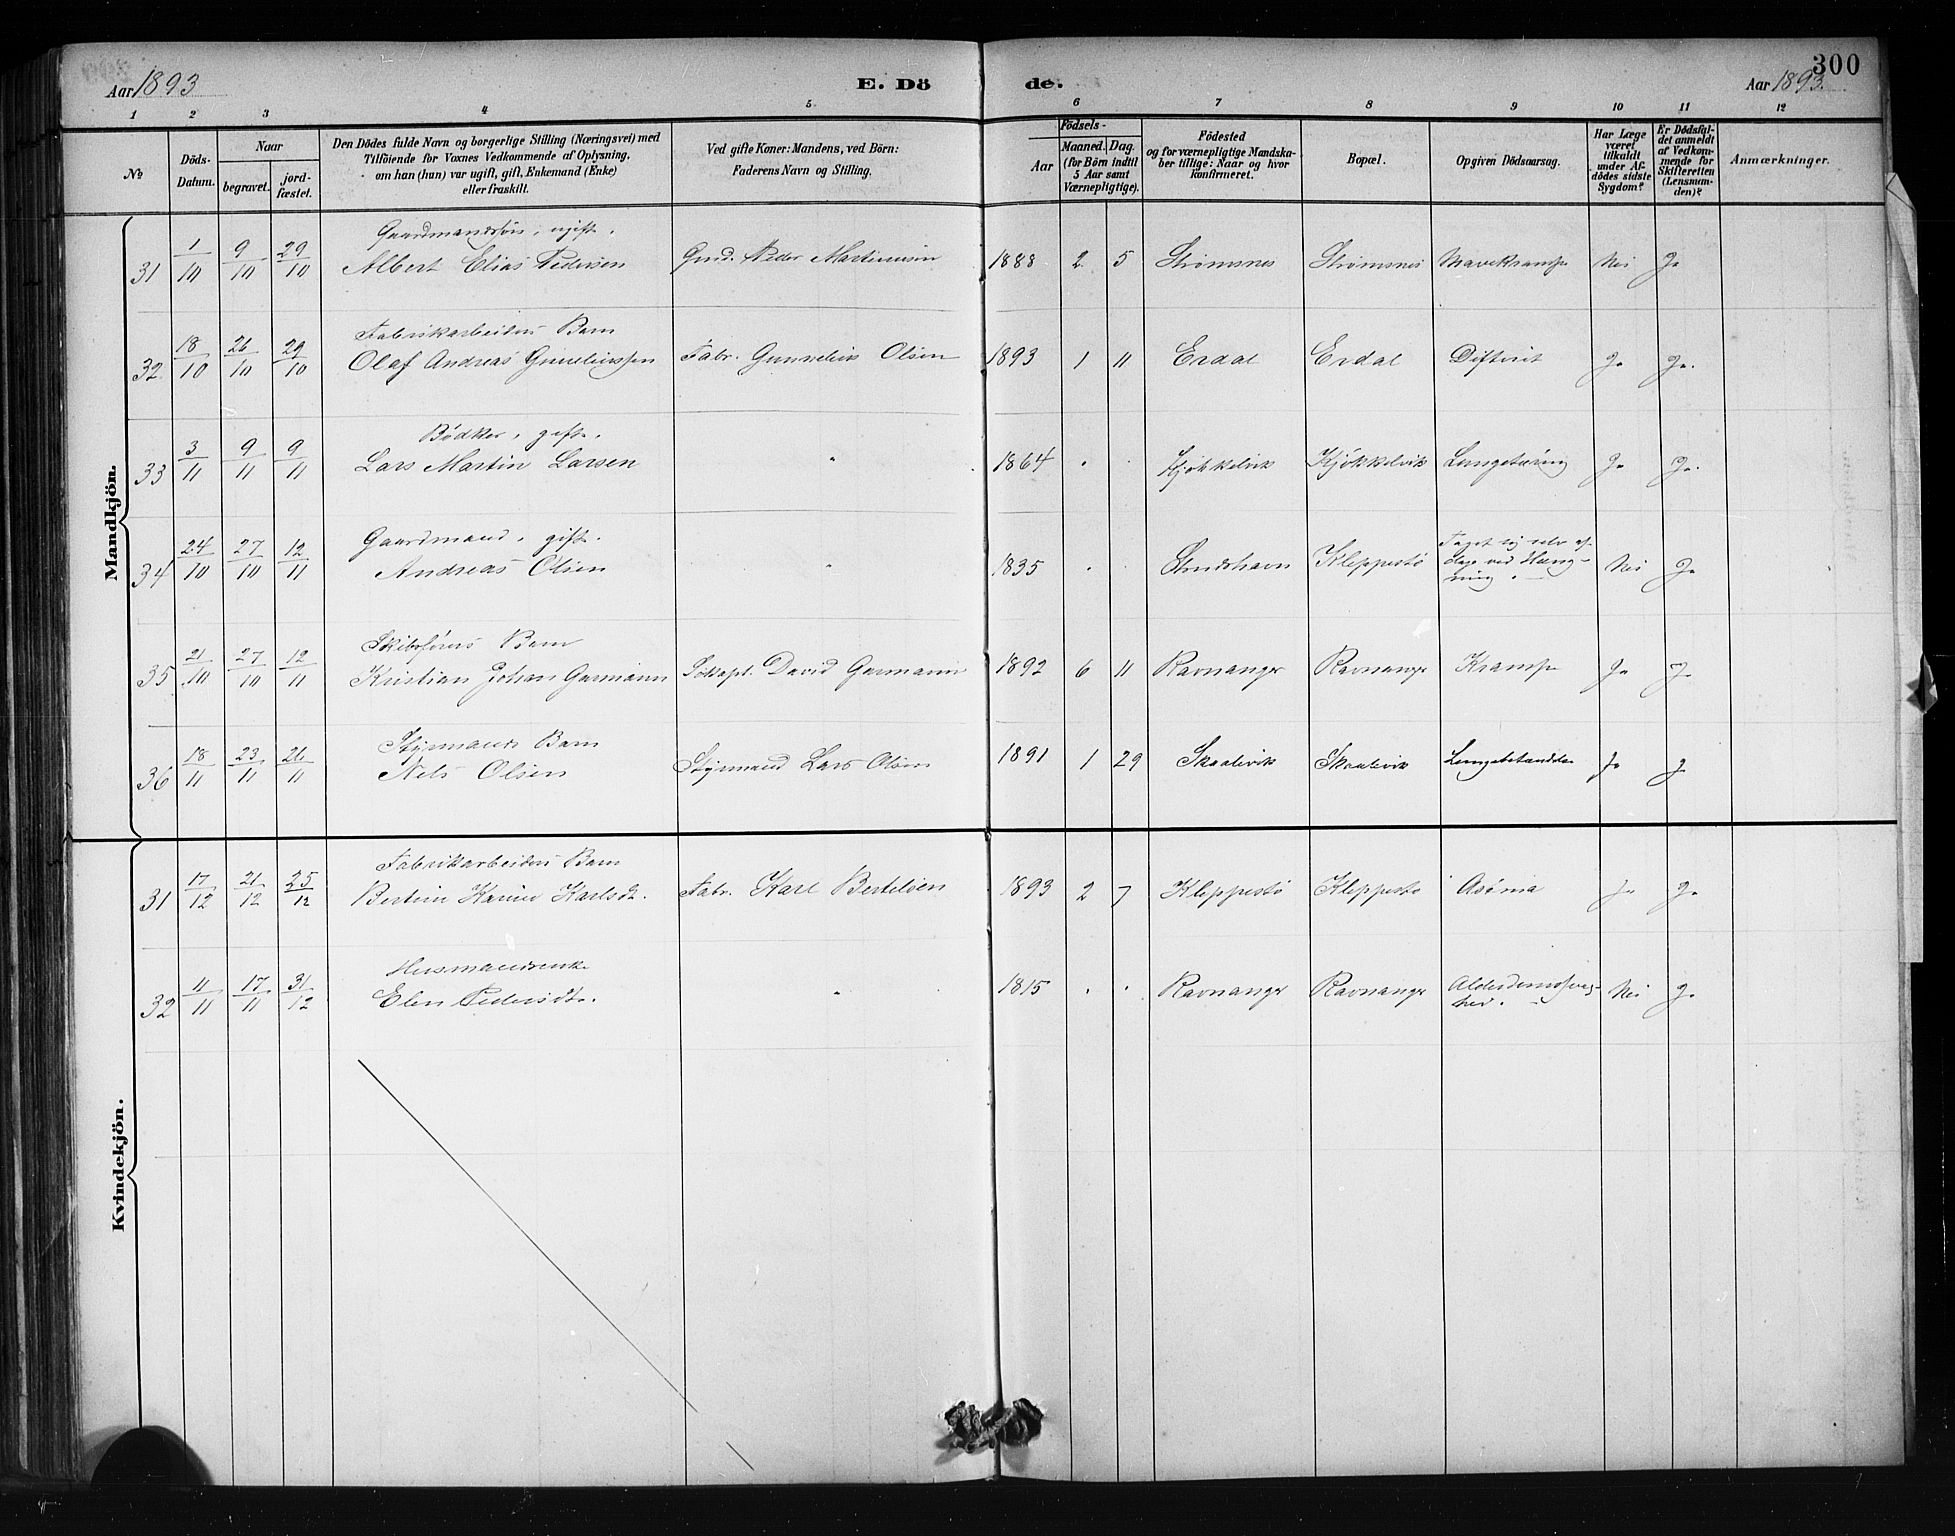 300
Aar 1893
E. Dö
de.
Aar 1893.
1 2 3 4 5 6 7 8 9 10 11 12
№
Döds-
Datum.
Naar
begravet.
jord-
fæstet.
Den Dödes fulde Navn og borgerlige Stilling (Næringsvei) med
Tilföiende for Voxnes Vedkommende af Oplysning,
om han (hun) var ugift, gift, Enkemand (Enke)
eller fraskilt.
Ved gifte Koner: Mandens, ved Börn:
Faderens Navn og Stilling.
Födsels-
Aar
Maaned. Dag.
(for Börn indtil
5 Aar samt
Værnepligtige).
Födested
og for værnepligtige Mandska-
ber tillige: Naar og hvor
konfirmeret.
Bopæl.
Opgiven Dödsaarsag.
Har Læge
været
tilkaldt
under Af-
dödes sidste
Sygdom?
Er Dödsfal-
det anmeldt
af Vedkom-
mende for
Skifteretten
(Lensman-
den)?
Anmærkninger.
Mandkjön.
Gaardmandssøn, ugift.
31 1/10 9/10 29/10 Albert Elias Pedersen Gmd. Peder Martinusen 1888 2 5 Strømsnes Strømsnes Mavekrampe Nei Ja
Fabrikarbeiders Barn
32 18/10 26/10 29/10 Olaf Andreas Gunneliussen Fabr. Gunnelius Olsen 1893 1 11 Erdal Erdal Difterit Ja Ja.
Bødker, gift.
33 3/11 9/11 9/11 Lars Martin Larsen " 1864 . . Kjøkkelvik Kjøkkelvik Lungetæring Ja Ja.
Gaardmand, gift.
34 24/10 27/10 12/11 Andreas Olsen " 1835 . . Strudshavn Kleppestø Taget sig selv af
dage ved Hæng-
ning. Nei Ja
Skibsførers Barn
35 21/10 27/10 12/11 Kristian Johan Garmann David Garmann 1892 6 11 Ravnanger Ravnange Krampe Ja J.
Styrmands Barn
36 18/11 23/11 26/11 Nels Olsen Styrmand Lars Olsen 1891 1 29 Skaalevik Skaalevik Lungebetændelse Ja J.
Kvindekjön.
Fabrikarbeiders Barn
31 17/12 21/12 25/12 Bertine Karine Karlsdt. Fabr. Karl Bertelsen 1893 2 7 Kleppestø Kleppestø Asóma Ja Ja
Husmandsenke
32 11/11 17/11 31/12 Elen Pedersdt. " 1815 . . Ravnanger Ravnange Alderdomssvag-
hed. Nei Ja